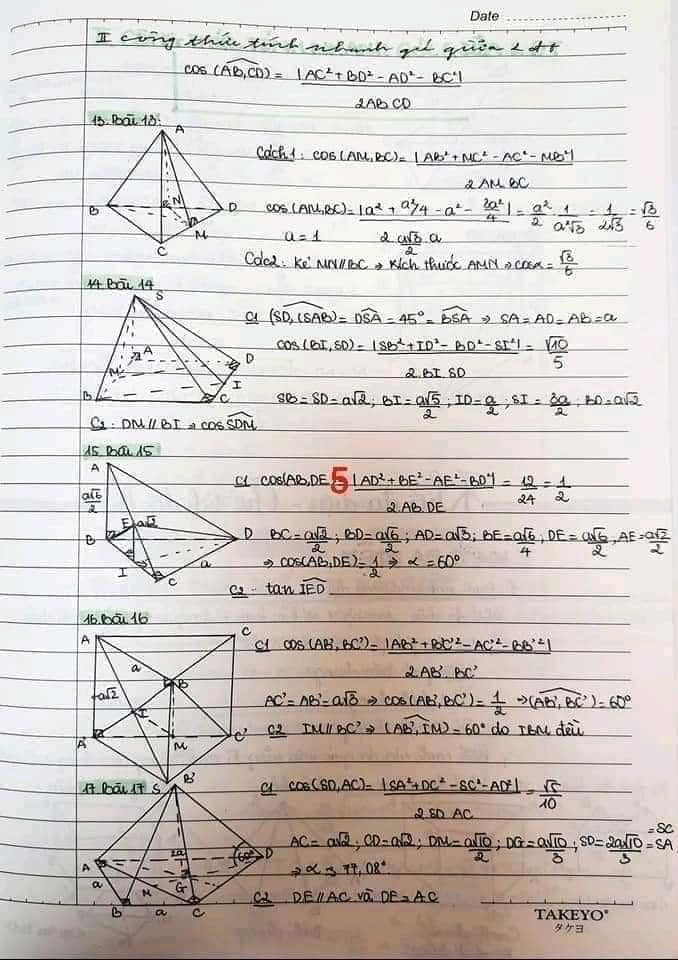 Date
II công thức tính nhanh góc giữa 2 đt
cos (AB,CD) = |AC² + BD² - AD² - BC²|
2AB.CD
13. Bài 13:
A
B
N
D
M
C
Cách 1: cos(AM,BC) = |AB² + MC² - AC² - MB²|
2AM.BC
cos(AM,BC) = |a² + a²/4 - a² - 3a²/4| = a²/2 . 1/a²√3 = 1/2√3 = √3/6
a = 1    2 a√3 .a
Các2: Kẻ MN//BC → Kích thước AMN → cosα = √3/6
14. Bài 14
S
A
D
M
I
B
C
C1 (SD,(SAB)) = DSA = 45° = BSA → SA = AD = AB = a
cos(BI,SD) = |SB² + ID² - BD² - SI²| = √10/5
2.BI.SD
SB = SD = a√2; BI = a√5/2; ID = a/2; SI = 3a/2; BD = a√2
C2: DM//BI → cos SDM
15. Bài 15
A
a√6/2
E
a√2
B
D
I
C
a
C1 cos(AB,DE 5 |AD² + BE² - AE² - BD²| = 12/24 = 1/2
2.AB.DE
BC = a√2/2; BD = a√6/2; AD = a√3; BE = a√6/4; DE = a√6/2; AE = a√2/2
→ cos(AB,DE) = 1/2 → α = 60°
C2: tan IED
16. Bài 16
A
C
a
B
a√2
I
A'
M
C'
B'
C1 cos(AB',BC') = |AB² + BC'² - AC'² - BB'²|
2AB'.BC'
AC' = AB' = a√3 → cos(AB',BC') = 1/2 → (AB',BC') = 60°
C2 IM//BC' → (AB',IM) = 60° do IBM đều
17. Bài 17
S
A
2a
60°
D
a
M
G
B
a
C
C1 cos(SD,AC) = |SA² + DC² - SC² - AD²| = √5/10
2SD AC
AC = a√2; CD = a√2; DM = a√10/2; DG = a√10/3; SD = 2a√10/3 = SC = SA
→ α ≈ 77,08°
C2 DE//AC và DE = AC
TAKEYO®
タケヨ